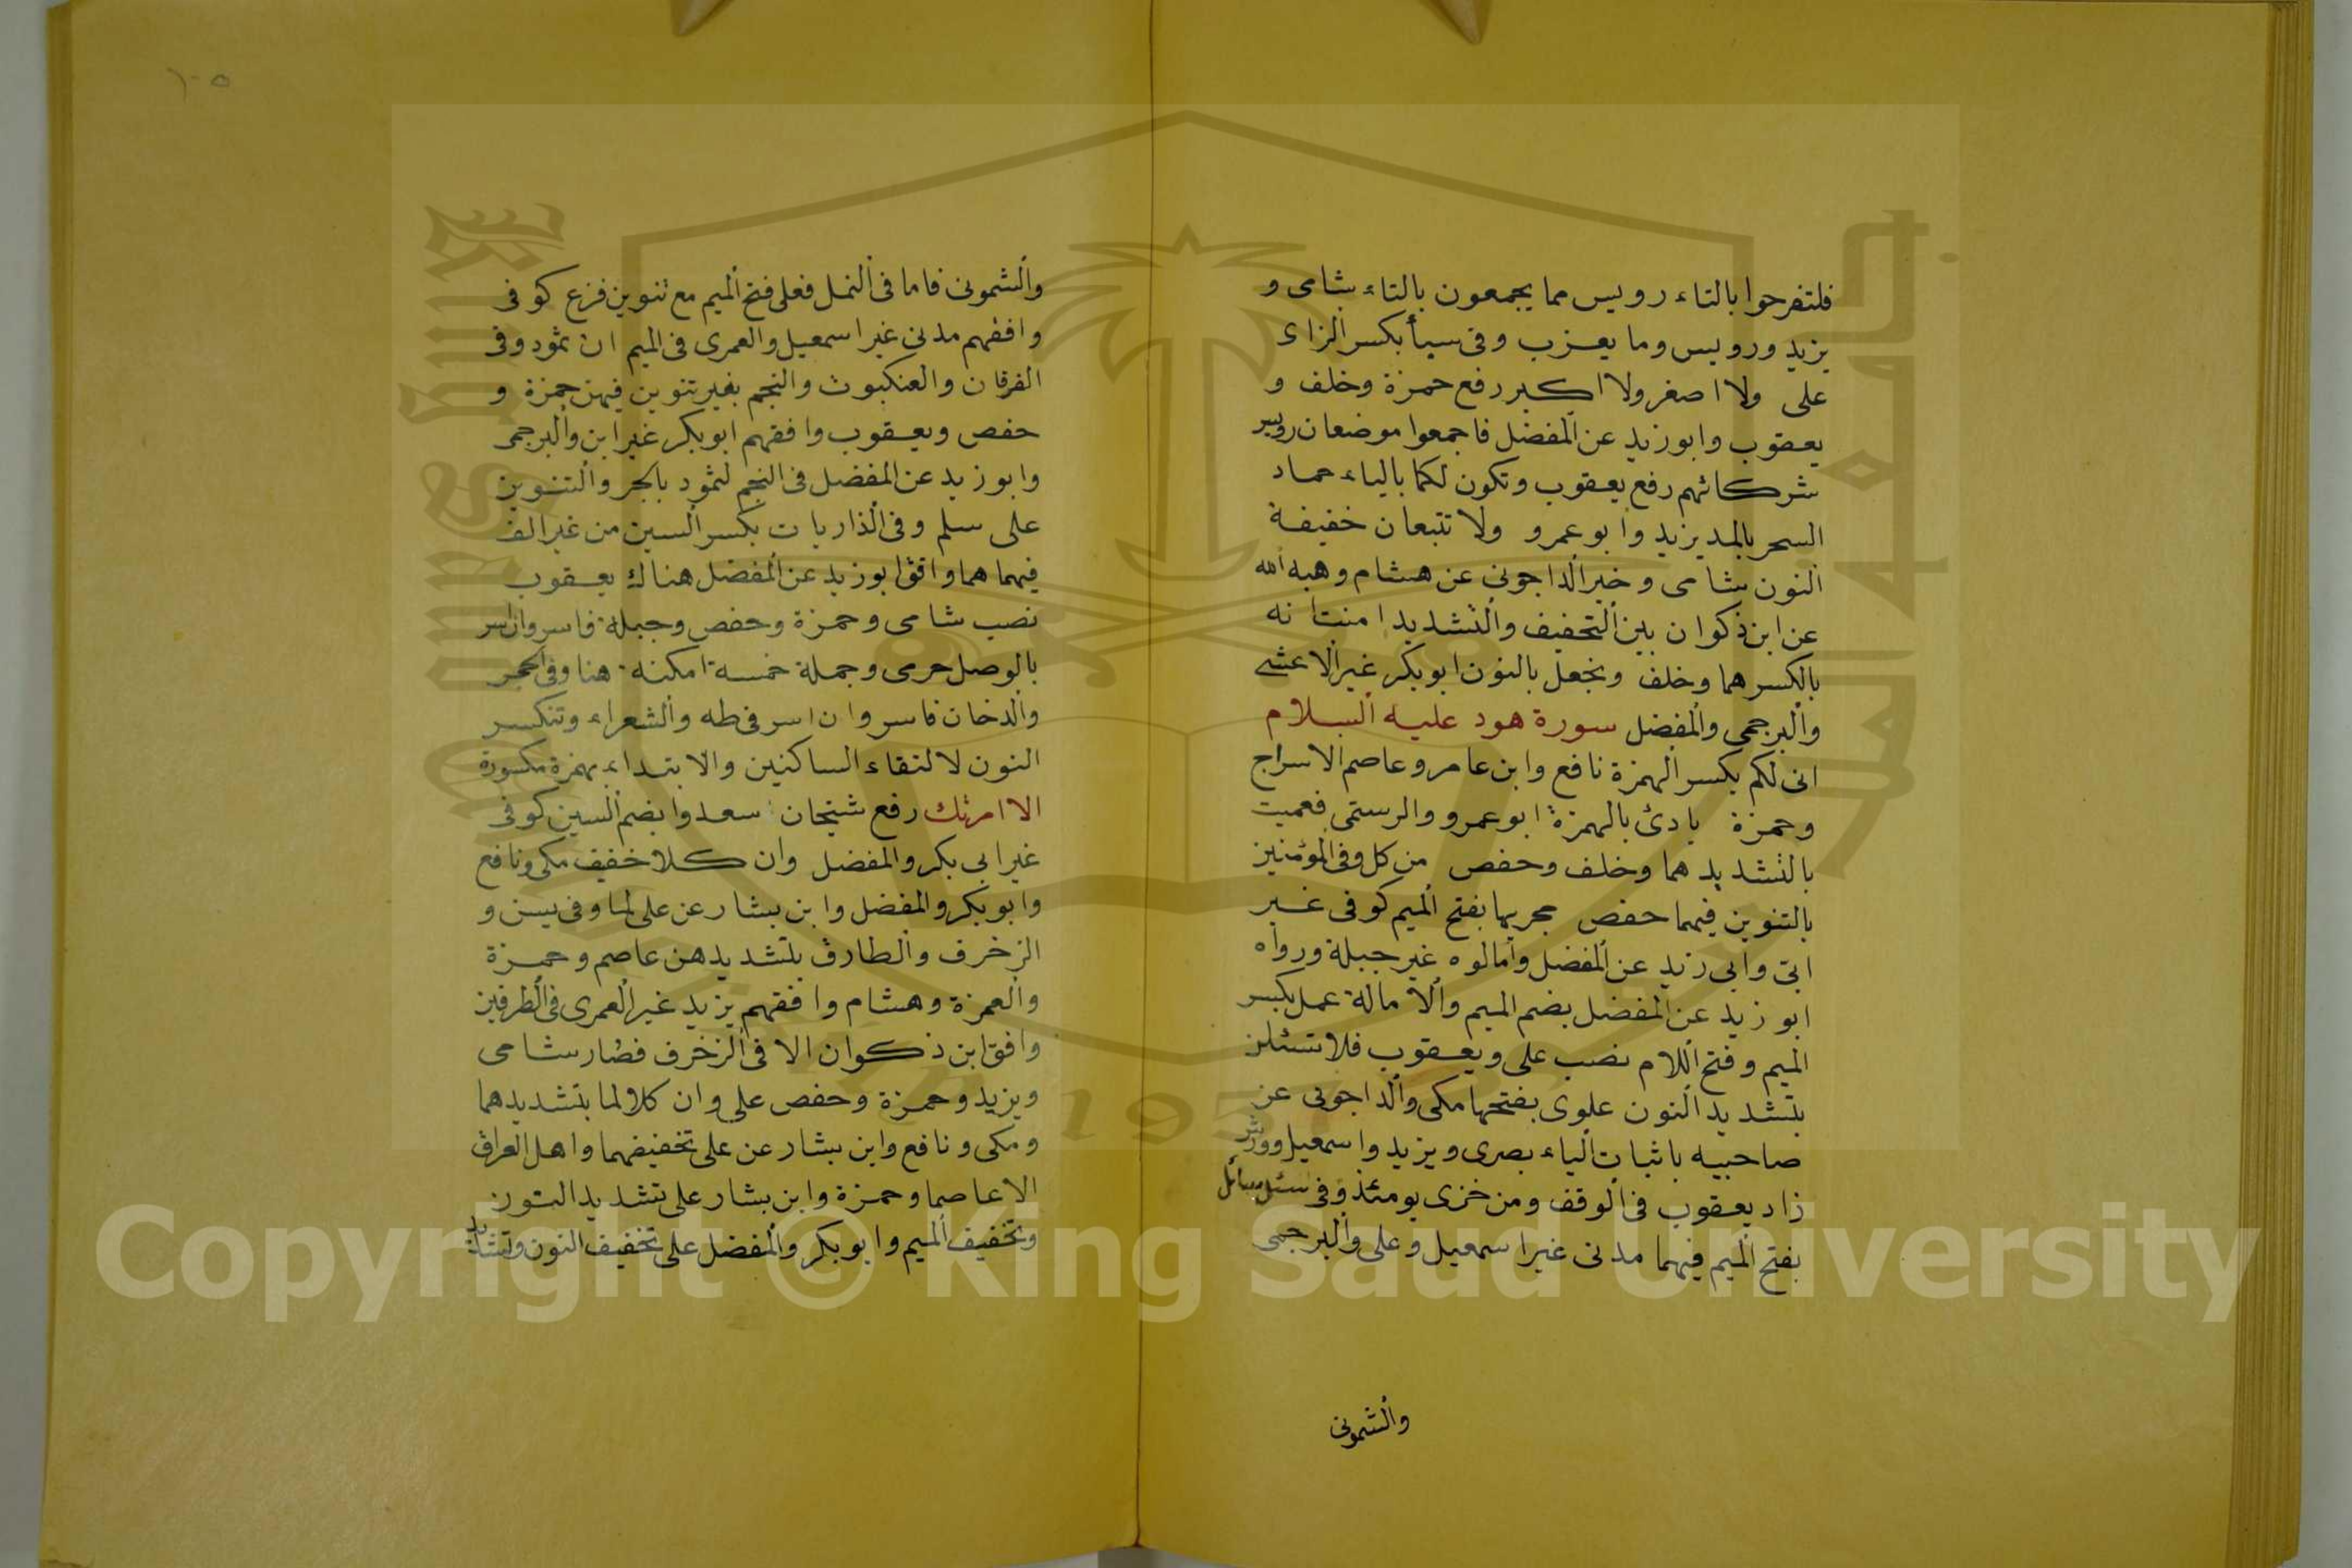 فلتفرحوا بالتاء رويس مما يجمعون بالتاء شامى و
يزيد ورويس وما يعزب وفى سبأ بكسر الزاى
على ولا اصغر ولا اكبر رفع حمزة وخلف و
يعقوب وابو زيد عن المفضل فاجمعوا موضعان رويس
شركائهم رفع يعقوب وتكون لكما بالياء حماد
السحر بالمد يزيد وابو عمرو ولا تتبعان خفيفة
النون شامى وخير الداجونى عن هشام وهبه الله
عن ابن ذكوان بين التخفيف والتشديد امنت انه
بالكسر هما وخلف ونجعل بالنون ابو بكر غير الاعشى
والبرجمى والمفضل سورة هود عليه السلام
انى لكم بكسر الهمزة نافع وابن عامر وعاصم الا سراج
وحمزة بادئ بالهمزة ابو عمرو والرستمى فعميت
بالتشديد هما وخلف وحفص من كل وفى المؤمنين
بالتنوين فيهما حفص مجريها بفتح الميم كوفى غير
ابى وابى زيد عن المفضل وامالوه غير جبلة ورواه
ابو زيد عن المفضل بضم الميم والامالة عمل بكسر
الميم وفتح اللام نصب على ويعقوب فلا تسئلن
بتشديد النون علوى بفتحها مكى والداجونى عن
صاحبيه باثبات الياء بصرى ويزيد واسمعيل وورش
زاد يعقوب فى الوقف ومن خزى يومئذ وفى سئل سائل
بفتح الميم فيهما مدنى غير اسمعيل وعلى والبرجمى
والشمونى
١٠٥
والشمونى فاما فى النمل فعلى فتح الميم مع تنوين فزع كوفى
وافقهم مدنى غير اسمعيل والعمرى فى الميم ان ثمود وفى
الفرقان والعنكبوت والنجم بغير تنوين فيهن حمزة و
حفص ويعقوب وافقهم ابو بكر غير ابن والبرجمى
وابو زيد عن المفضل فى النجم لثمود بالجر والتنوين
على سلم وفى الذاريات بكسر السين من غير الف
فيهما هما وافق ابو زيد عن المفضل هناك يعقوب
نصب شامى وحمزة وحفص وجبلة فاسر وان اسر
بالوصل حرمى وجملة خمسة امكنة هنا وفى الحجر
والدخان فاسر وان اسر فى طه والشعراء وتنكسر
النون لالتقاء الساكنين والابتداء بهمزة مكسورة
الا امرتك رفع شيخان سعدوا بضم السين كوفى
غير ابى بكر والمفضل وان كلا خفيف مكى ونافع
وابو بكر والمفضل وابن بشار عن على لما وفى يسن و
الزخرف والطارق بتشديدهن عاصم وحمزة
والعمزة وهشام وافقهم يزيد غير العمرى فى الطرفين
وافق ابن ذكوان الا فى الزخرف فصار شامى
ويزيد وحمزة وحفص على وان كلا لما بتشديدهما
ومكى ونافع وابن بشار عن على تخفيفهما واهل العراق
الا عاصما وحمزة وابن بشار على تشديد النون
وتخفيف الميم وابو بكر والمفضل على تخفيف النون وتشديد
Copyright © King Saud University